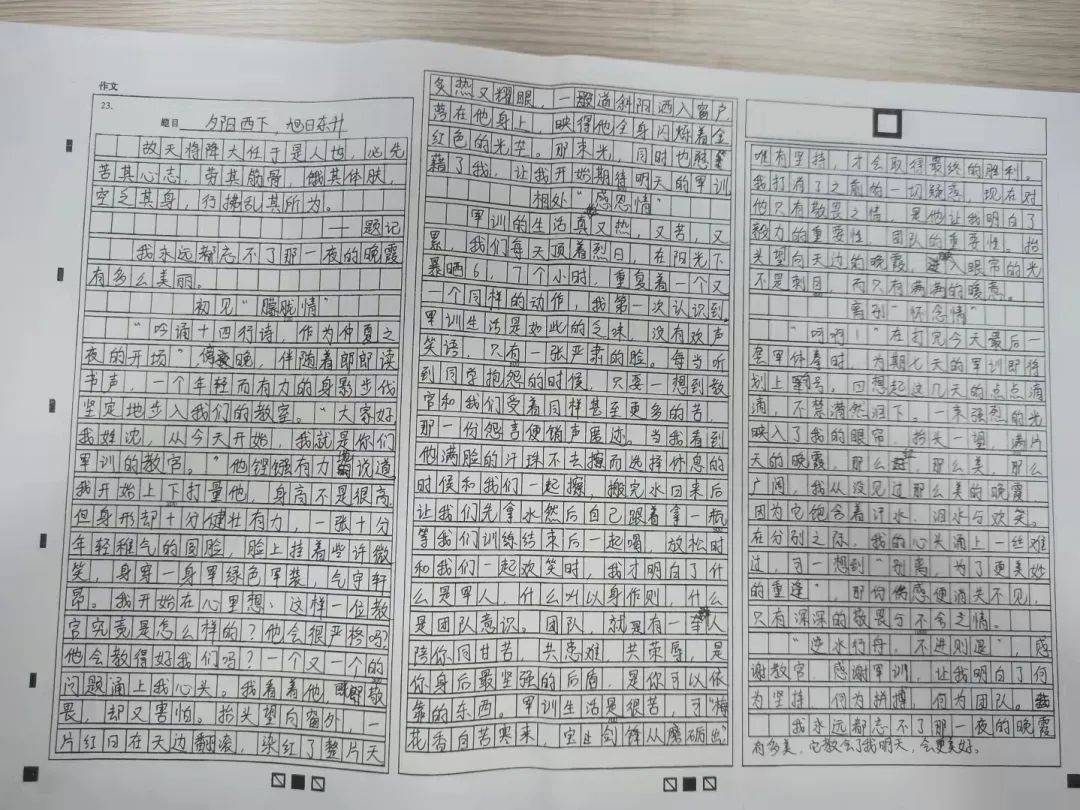 作文
23.
题目 夕阳西下，旭日东升
故天将降大任于是人也，必先
苦其心志，劳其筋骨，饿其体肤，
空乏其身，行拂乱其所为。
——题记
我永远都忘不了那一夜的晚霞
有多么美丽。
初见“朦胧情”
“吟诵十四行诗，作为仲夏之
夜的开场”，傍晚，伴随着郎郎读
书声，一个年轻而有力的身影步伐
坚定地步入我们的教室。“大家好，
我姓沈，从今天开始，我就是你们
军训的教官。”他铿锵有力的说道
我开始上下打量他，身高不是很高，
但身形却十分健壮有力，一张十分
年轻稚气的圆脸，脸上挂着些许微
笑，身穿一身军绿色军装，气宇轩
昂。我开始在心里想：这样一位教
官究竟是怎么样的？他会很严格吗？
他会教得好我们吗？一个又一个的
问题涌上我心头。我看着他，敬
畏，却又害怕。抬头望向窗外，一
片红日在天边翻滚，染红了整片天
炙热又耀眼，一道斜阳洒入窗户，
落在他身上，映得他全身闪烁着金
红色的光芒。那束光，同时也
藉了我，让我开始期待明天的军训
相处“感恩情”
军训的生活真又热，又苦，又
累，我们每天顶着烈日，在阳光下
暴晒6，7个小时，重复着一个又
一个同样的动作，我第一次认识到，
军训生活是如此的乏味，没有欢声
笑语，只有一张严肃的脸。每当听
到同学抱怨的时候，只要一想到教
官和我们受着同样甚至更多的苦，
那一份怨言便销声匿迹。当我看到
他满脸的汗珠不去擦而选择休息的
时候和我们一起擦，搬完水回来后
让我们先拿水然后自己跟着拿一瓶
等我们训练结束后一起喝，放松时
和我们一起欢笑时，我才明白了什
么是军人，什么叫以身作则，什么
是团队意识。团队，就是有一人
陪你同甘苦，共患难，共荣辱，是
你身后最坚强的后盾，是你可以依
靠的东西。军训生活是很苦，可“梅
花香自苦寒来，宝剑锋从磨砺出”
唯有坚持，才会取得最终的胜利。
我打消了之前的一切疑惑，现在对
他只有敬畏之情，是他让我明白了
毅力的重要性，团队的重要性。抬
头望向天边的晚霞，进入眼帘的光
不是刺目，而只有满满的暖意。
离别“怀念情”
“呵呵！”在打完今天最后一
套军体拳时，为期七天的军训即将
划上句号，回想起这几天的点点滴
滴，不禁潸然泪下。一束强烈的光
映入了我的眼帘，抬头一望，满片
天的晚霞，那么红，那么美，那么
广阔，我从没见过那么美的晚霞，
因为它饱含着汗水，泪水与欢笑。
在分别之际，我的心头涌上一丝难
过，可一想到“别离，为了更美妙
的重逢”，那份伤感便消失不见，
只有深深的敬畏与不舍之情。
“逆水行舟，不进则退”，感
谢教官，感谢军训，让我明白了何
为坚持，何为拼搏，何为团队。
我永远都忘不了那一夜的晚霞
有多美，它教会了我明天，会更美好。